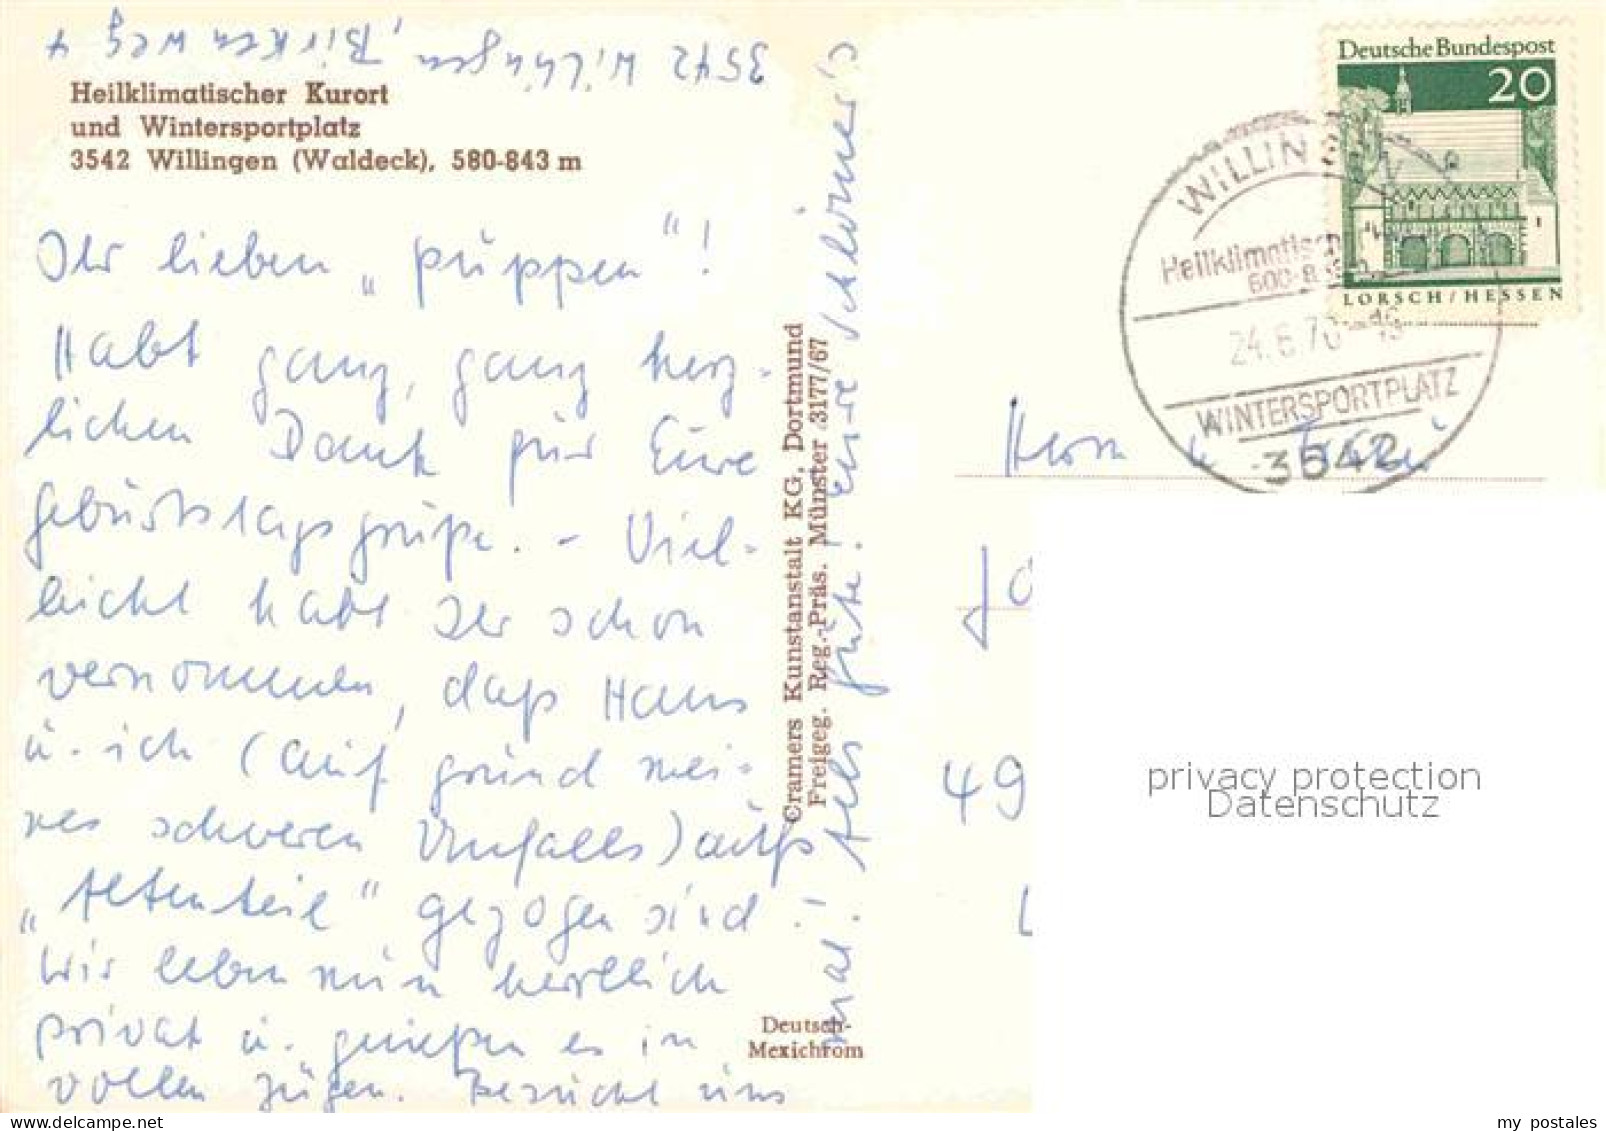 3542 Willingen, Birkenweg 4
Heilklimatischer Kurort
und Wintersportplatz
3542 Willingen (Waldeck), 580-843 m
Ihr lieben „püppen"!
Habt ganz, ganz herz-
lichen Dank für Eure
Geburtstagsgrüße. - Viel-
leicht habt Ihr schon
vernommen, daß Hans
u. ich (auf grund mei-
nes schweren Unfalls) aufs
„Altenteil" gezogen sind -
Wir leben nun herrlich
privat u. genießen es in
vollen Zügen. Besucht uns
mal. Alles gute! eure
Cramers Kunstanstalt KG, Dortmund
Freigeg. Reg.-Präs. Münster 3177/67
Deutsch-
Mexichrom
Deutsche Bundespost
20
LORSCH/HESSEN
Heilklimatisch
24.6.70-16
WINTERSPORTPLATZ
3542
Herrn u. Frau
49
privacy protection
Datenschutz
my postales